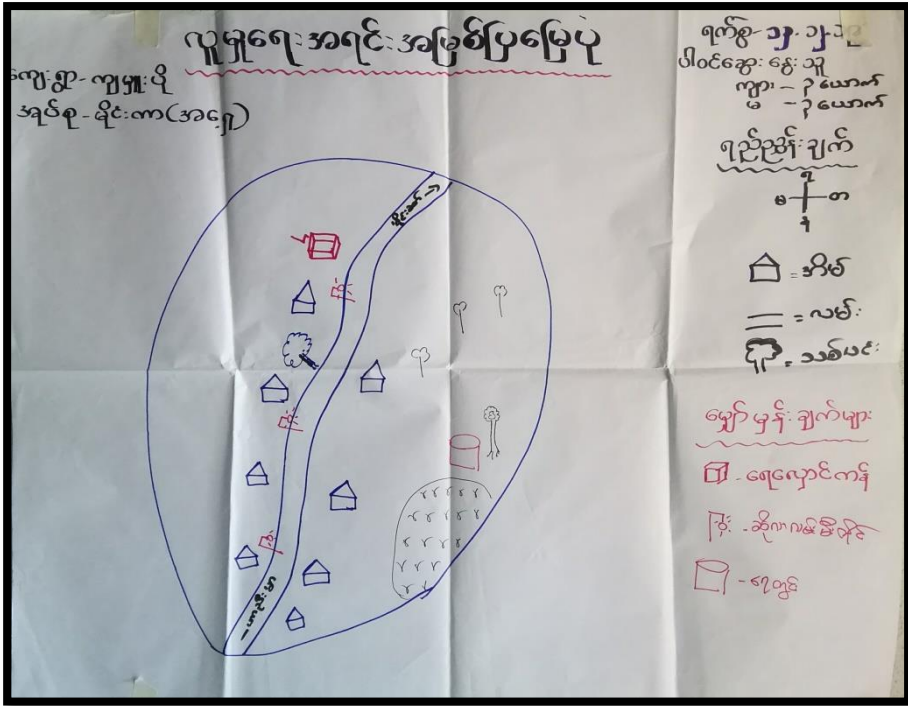 လူမှုရေးအရင်းအမြစ်ပြမြေပုံ
ကျေးရွာ - ကျမှူးပို
အုပ်စု - မိုင်းကာ(အရှေ့)
ရက်စွဲ - ၁၃.၁၂.
ပါဝင်ဆွေးနွေးသူ
ကျား - ၃ ယောက်
မ - ၃ ယောက်
ရည်ညွှန်းချက်
မ တ
= အိမ်
= လမ်း
= သစ်ပင်
မျှော်မှန်းချက်များ
- ရေလှောင်ကန်
- ဆိုလာလမ်းမီးတိုင်
- ရေတွင်း